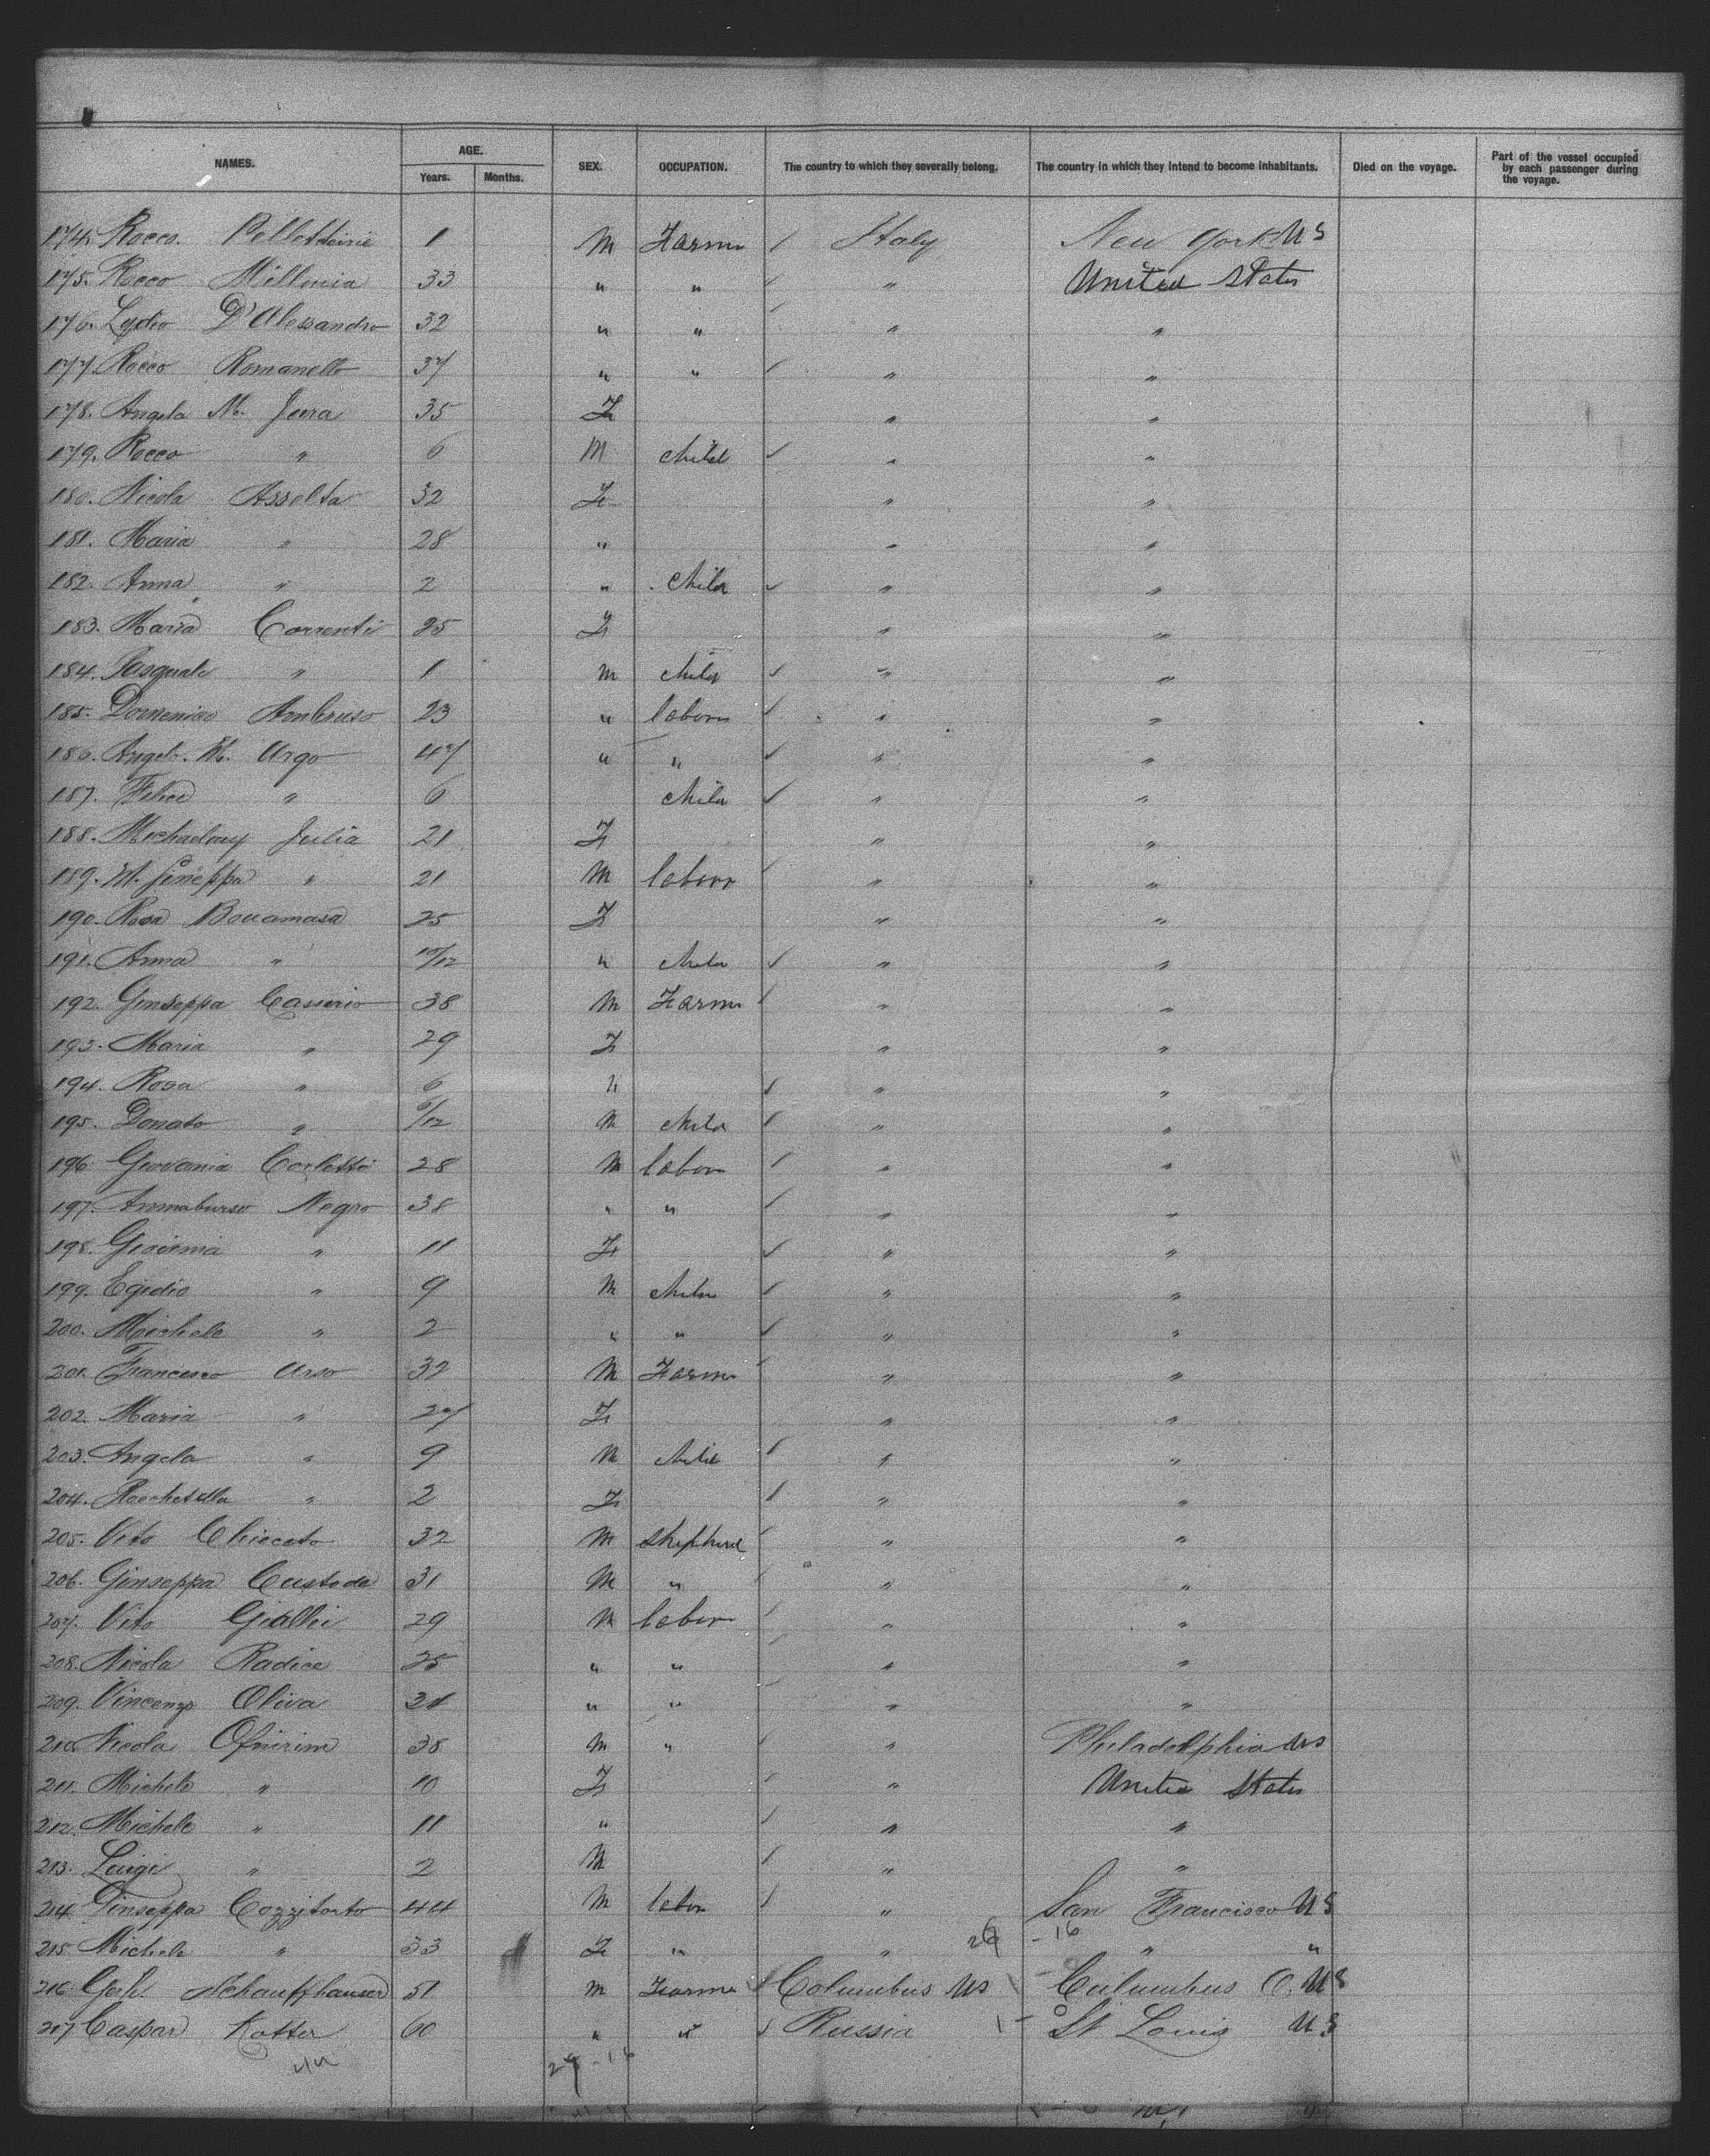 NAMES. AGE. Years. Months. SEX. OCCUPATION. The country to which they severally belong. The country in which they intend to become inhabitants. Died on the voyage. Part of the vessel occupied by each passenger during the voyage.
174. Rocco 1 M Farmr Italy New York US
175. Rocco 33 " " " United States
176. D'Alessandro 32 " " " "
177. Rocco Romanello 37 " " " "
178. Angela M. Jura 35 F " "
179. Rocco " 6 M child " "
180. Nicola Asselta 32 F " "
181. Maria " 28 " " "
182. Anna " 2 " Child " "
183. Maria Correnti 25 F " "
184. Pasquale " 1 M child " "
185. Domenico Ambruso 23 " labour " "
186. Angelo M. Urgo 47 " " " "
187. Felice " 6 child " "
188. Julia 21 F " "
189. M. Giuseppa " 21 M labour " "
190. Rosa Bouamasa 25 F " "
191. Anna " 10/12 " child " "
192. Giuseppa Casserio 38 M Farmr " "
193. Maria " 29 F " "
194. Rosa " 6 " " "
195. Donato " 6/12 M child " "
196 Giovania Carletti 28 M labour " "
197. Negro 38 " " " "
198. " 11 F " "
199. Egidio " 9 M child " "
200. Michele " 2 " " " "
201. Francesco Urso 32 M Farmr " "
202. Maria " 27 F " "
203. Angela " 9 M child " "
204. Rochetella " 2 F " "
205. Vito Chiecato 32 M Shepherd " "
206. Giuseppa Custode 31 M " " "
207. Vito Giallei 29 M labour " "
208. Nicola Radice 25 " " " "
209. Vincenzo Oliva 31 " " " "
210. Nicola 38 M " " Philadelphia US
211. Michele " 10 F " United States
212. Michele " 11 " " "
213. Luigi " 2 M " "
214. Giuseppa Cozzitorto 44 M labor " San Francisco US
215. Michele " 33 F " " 26 - 16 " "
216. Gerh. Schauffhauser 51 M Farmr Columbus US Columbus O. US
217 Caspar Kotter 60 " " Russia 1 - St Louis US
44 29 - 16